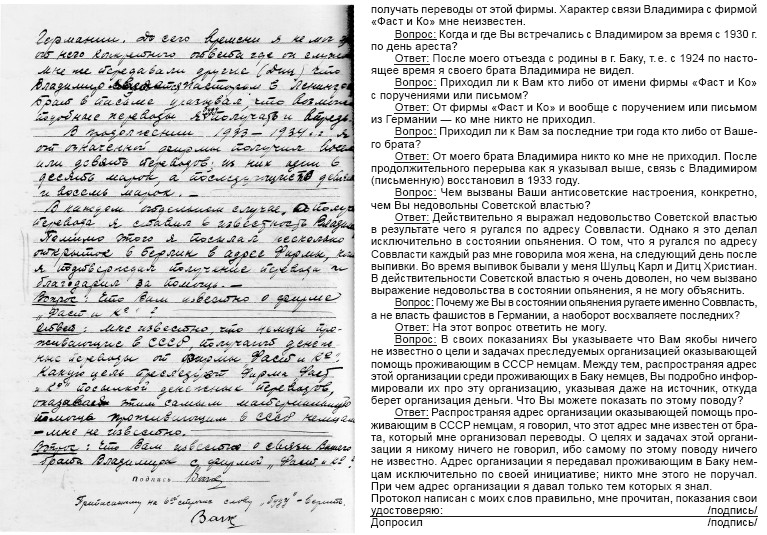 Германии. До сего времени я не мог
от него конкретного ответа где он служит
мне передавали другие что
Владимир пастором в
в письме указывал, что
подобные переводы я получать и впредь.
В продолжении 1933 – 1934 г. я
от означенной фирмы получил
или девять переводов; из них один в
десять марок, а последующие
и восемь марок. –
В каждом отдельном случае,
перевода я ставил в известность
Помимо этого я посылал несколько
открыток в Берлин в адрес Фирмы,
я подтверждал получение перевода и
благодарил за помощь. –
Вопрос: Что Вам известно о фирме
„Фаст и К°“?
Ответ: Мне известно, что немцы про-
живающие в СССР, получают денеж-
ные переводы от Фирмы Фаст и К°.
Какую цель преследует Фирма Фаст
и К° посылкой денежных переводов,
оказывая этим самым
помощь проживающим в СССР немцам
– мне не известно.
Вопрос: Что Вам известно о связи Вашего
брата Владимира с фирмой „Фаст и К°“?
Подпись
Приписанному на стр. слову „буду“ – верить.
получать переводы от этой фирмы. Характер связи Владимира с фирмой
«Фаст и Ко» мне неизвестен.
Вопрос: Когда и где Вы встречались с Владимиром за время с 1930 г.
по день ареста?
Ответ: После моего отъезда с родины в г. Баку, т. е. с 1924 по насто-
ящее время я своего брата Владимира не видел.
Вопрос: Приходил ли к Вам кто либо от имени фирмы «Фаст и Ко»
с поручениями или письмом?
Ответ: От фирмы «Фаст и Ко» и вообще с поручением или письмом
из Германии — ко мне никто не приходил.
Вопрос: Приходил ли к Вам за последние три года кто либо от Ваше-
го брата?
Ответ: От моего брата Владимира никто ко мне не приходил. После
продолжительного перерыва как я указывал выше, связь с Владимиром
(письменную) восстановил в 1933 году.
Вопрос: Чем вызваны Ваши антисоветские настроения, конкретно,
чем Вы недовольны Советской властью?
Ответ: Действительно я выражал недовольство Советской властью
в результате чего я ругался по адресу Соввласти. Однако я это делал
исключительно в состоянии опьянения. О том, что я ругался по адресу
Соввласти каждый раз мне говорила моя жена, на следующий день после
выпивки. Во время выпивок бывали у меня Шульц Карл и Дитц Христиан.
В действительности Советской властью я очень доволен, но чем вызвано
выражение недовольства в состоянии опьянения, я не могу объяснить.
Вопрос: Почему же Вы в состоянии опьянения ругаете именно Соввласть,
а не власть фашистов в Германии, а наоборот восхваляете последних?
Ответ: На этот вопрос ответить не могу.
Вопрос: В своих показаниях Вы указываете что Вам якобы ничего
не известно о цели и задачах преследуемых организацией оказывающей
помощь проживающим в СССР немцам. Между тем, распространяя адрес
этой организации среди проживающих в Баку немцев, Вы подробно инфор-
мировали их про эту организацию, указывая даже на источник, откуда
берет организация деньги. Что Вы можете показать по этому поводу?
Ответ: Распространяя адрес организации оказывающей помощь про-
живающим в СССР немцам, я говорил, что этот адрес мне известен от бра-
та, который мне организовал переводы. О целях и задачах этой органи-
зации я никому ничего не говорил, ибо самому по этому поводу ничего
не известно. Адрес организации я передавал проживающим в Баку нем-
цам исключительно по своей инициативе; никто мне этого не поручал.
При чем адрес организации я давал только тем которых я знал.
Протокол написан с моих слов правильно, мне прочитан, показания свои
удостоверяю: /подпись/
Допросил /подпись/